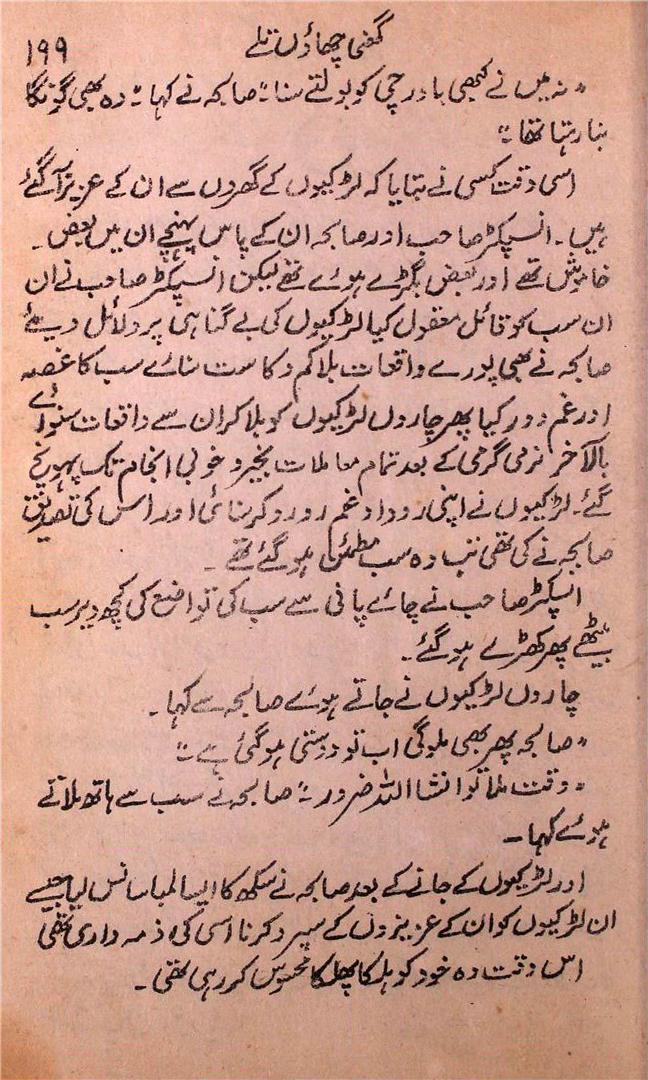 گھنی چھاؤں تلے
۱۹۹
"نہ میں نے کبھی باورچی کو بولتے سنا" صالحہ نے کہا "وہ بھی گونگا
بنا رہتا تھا"
اسی وقت کسی نے بتایا کہ لڑکیوں کے گھروں سے ان کے عزیز آ گئے
ہیں۔ انسپکٹر صاحب اور صالحہ ان کے پاس پہنچے ان میں بعض۔
خاموش تھے اور بعض بگڑے ہوئے تھے لیکن انسپکٹر صاحب نے ان
ان سب کو قائل معقول کیا لڑکیوں کی بے گناہی پر دلائل دیئے
صالحہ نے بھی پورے واقعات بلا کم و کاست سنائے سب کا غصہ
اور غم دور کیا پھر چاروں لڑکیوں کو بلا کر ان سے واقعات سنوائے
بالآخر نرمی گرمی کے بعد تمام معاملات بخیر و خوبی انجام تک پہونچ
گئے۔ لڑکیوں نے اپنی روداد غم رو رو کر سنائی اور اس کی تصدیق
صالحہ نے کی تھی تب وہ سب مطمئن ہو گئے تھے۔
انسپکٹر صاحب نے چائے پانی سے سب کی تواضع کی کچھ دیر سب
بیٹھے پھر کھڑے ہو گئے۔
چاروں لڑکیوں نے جاتے ہوئے صالحہ سے کہا۔
"صالحہ پھر بھی ملوگی اب تو دوستی ہو گئی ہے"
"وقت ملا تو انشا اللہ ضرور" صالحہ نے سب سے ہاتھ ملاتے
ہوئے کہا۔
اور لڑکیوں کے جانے کے بعد صالحہ نے سکھ کا ایسا لمبا سانس لیا جیسے
ان لڑکیوں کو ان کے عزیزوں کے سپرد کرنا اسی کی ذمہ داری تھی
اس وقت وہ خود کو ہلکا پھلکا محسوس کر رہی تھی۔